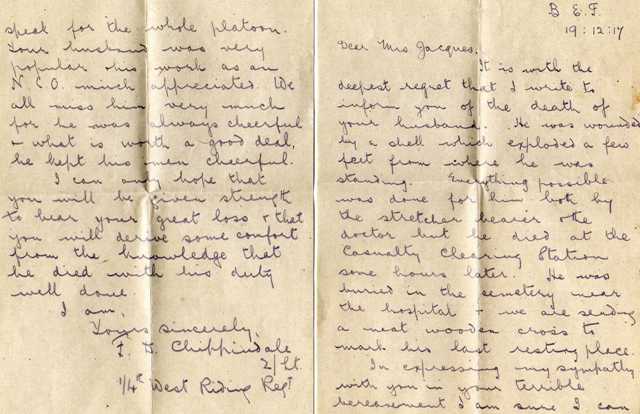 B E F.
19.12.17
Dear Mrs Jacques.
It is with the
deepest regret that I write to
inform you of the death of
your husband. He was wounded
by a shell which exploded a few
feet from where he was
standing. Everything possible
was done for him both by
the stretcher bearer & the
doctor but he died at the
Casualty Clearing Station
some hours later. He was
buried in the cemetery near
the hospital & we are sending
a neat wooden cross to
mark his last resting place.
In expressing my sympathy
with you in your terrible
bereavement I am sure I can
speak for the whole platoon.
Your husband was very
popular his work as an
N.C.O. much appreciated. We
all miss him very much
for he was always cheerful
& what is worth a good deal,
he kept his men cheerful.
I can only hope that
you will be given strength
to bear your great loss & that
you will derive some comfort
from the knowledge that
he died with his duty
well done.
I am,
Yours sincerely,
F. D. Chippindale
2/Lt.
1/4th West Riding Regt